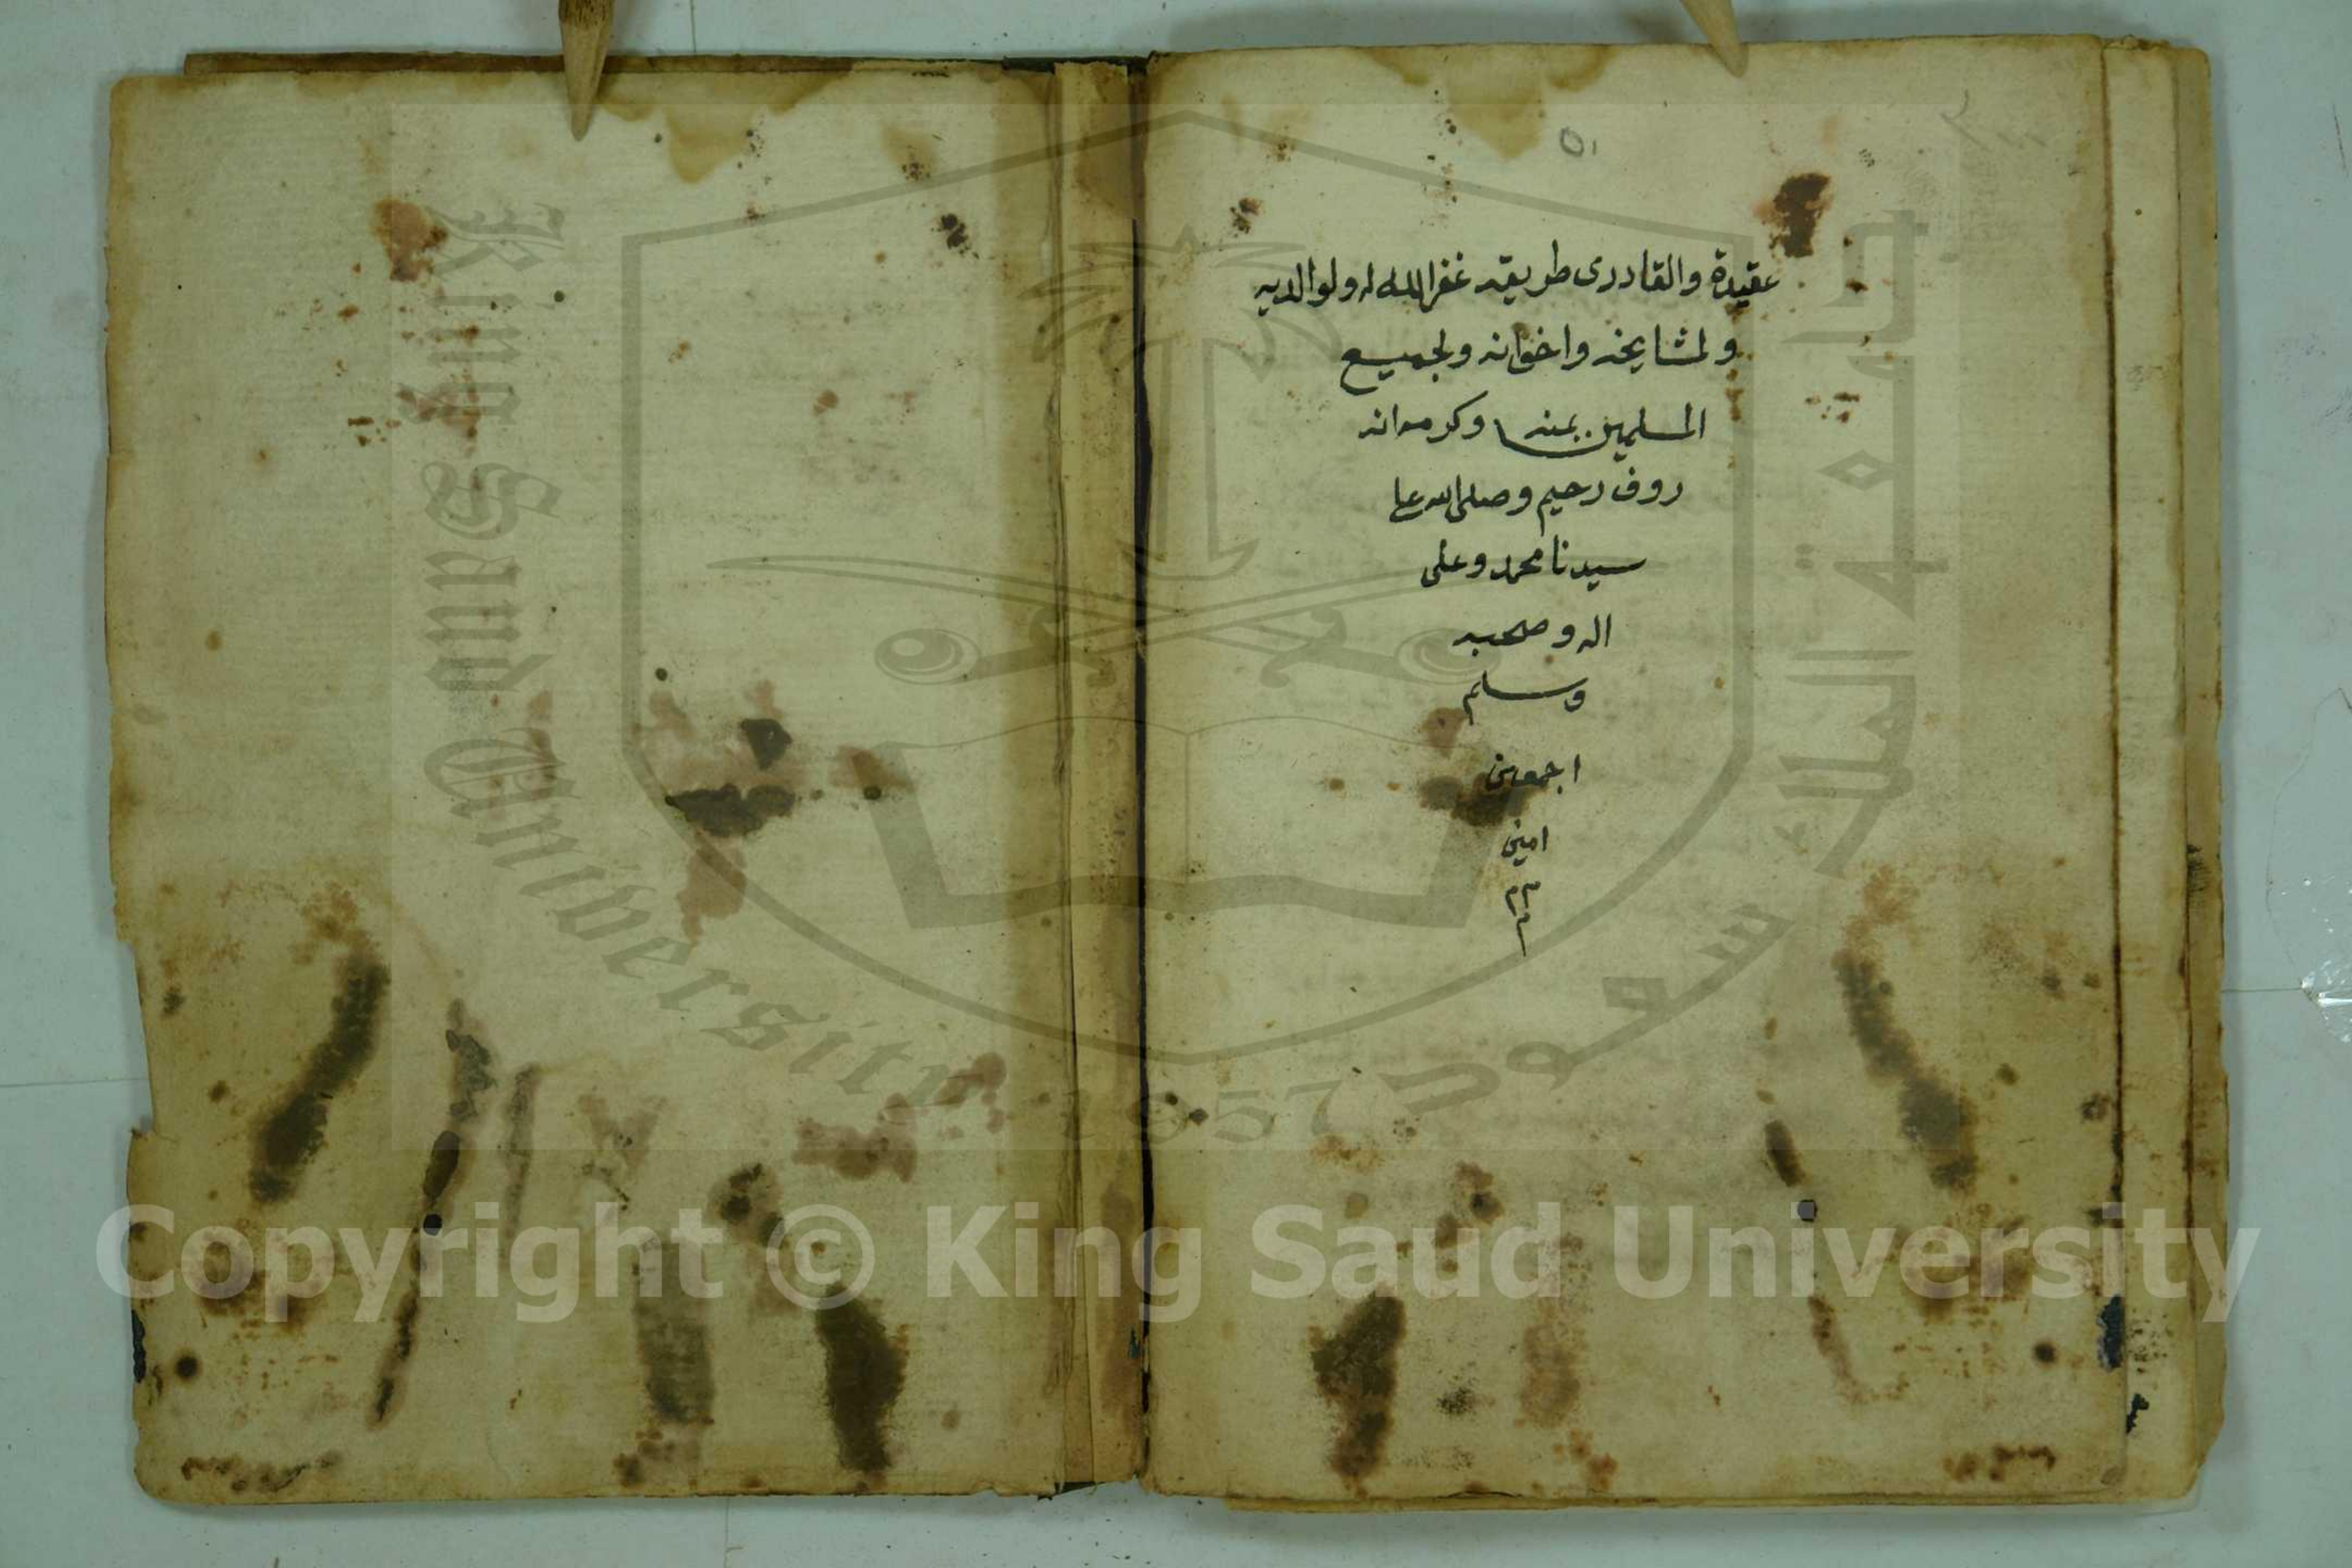 ٥١
عقيدة والقادرى طريقه غفر الله له ولوالديه
ولمشايخه واخوانه ولجميع
المسلمين بمنه وكرمه انه
روف رحيم وصلى الله على
سيدنا محمد وعلى
اله وصحبه
وسلم
اجمعين
امين
King Saud University
1957
جامعة الملك سعود
Copyright © King Saud University